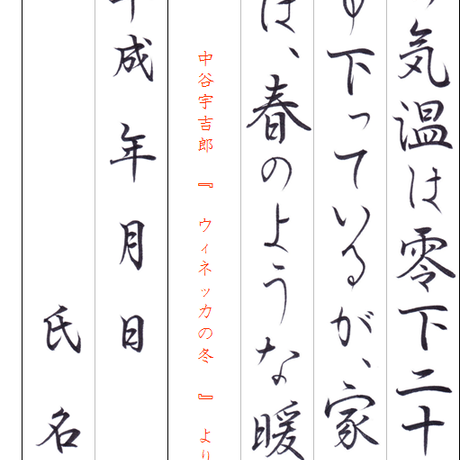 気温は零下二十
下っているが、家
は、春のような暖
中谷宇吉郎 『 ウィネッカの冬 』 より
成 年 月 日
氏 名